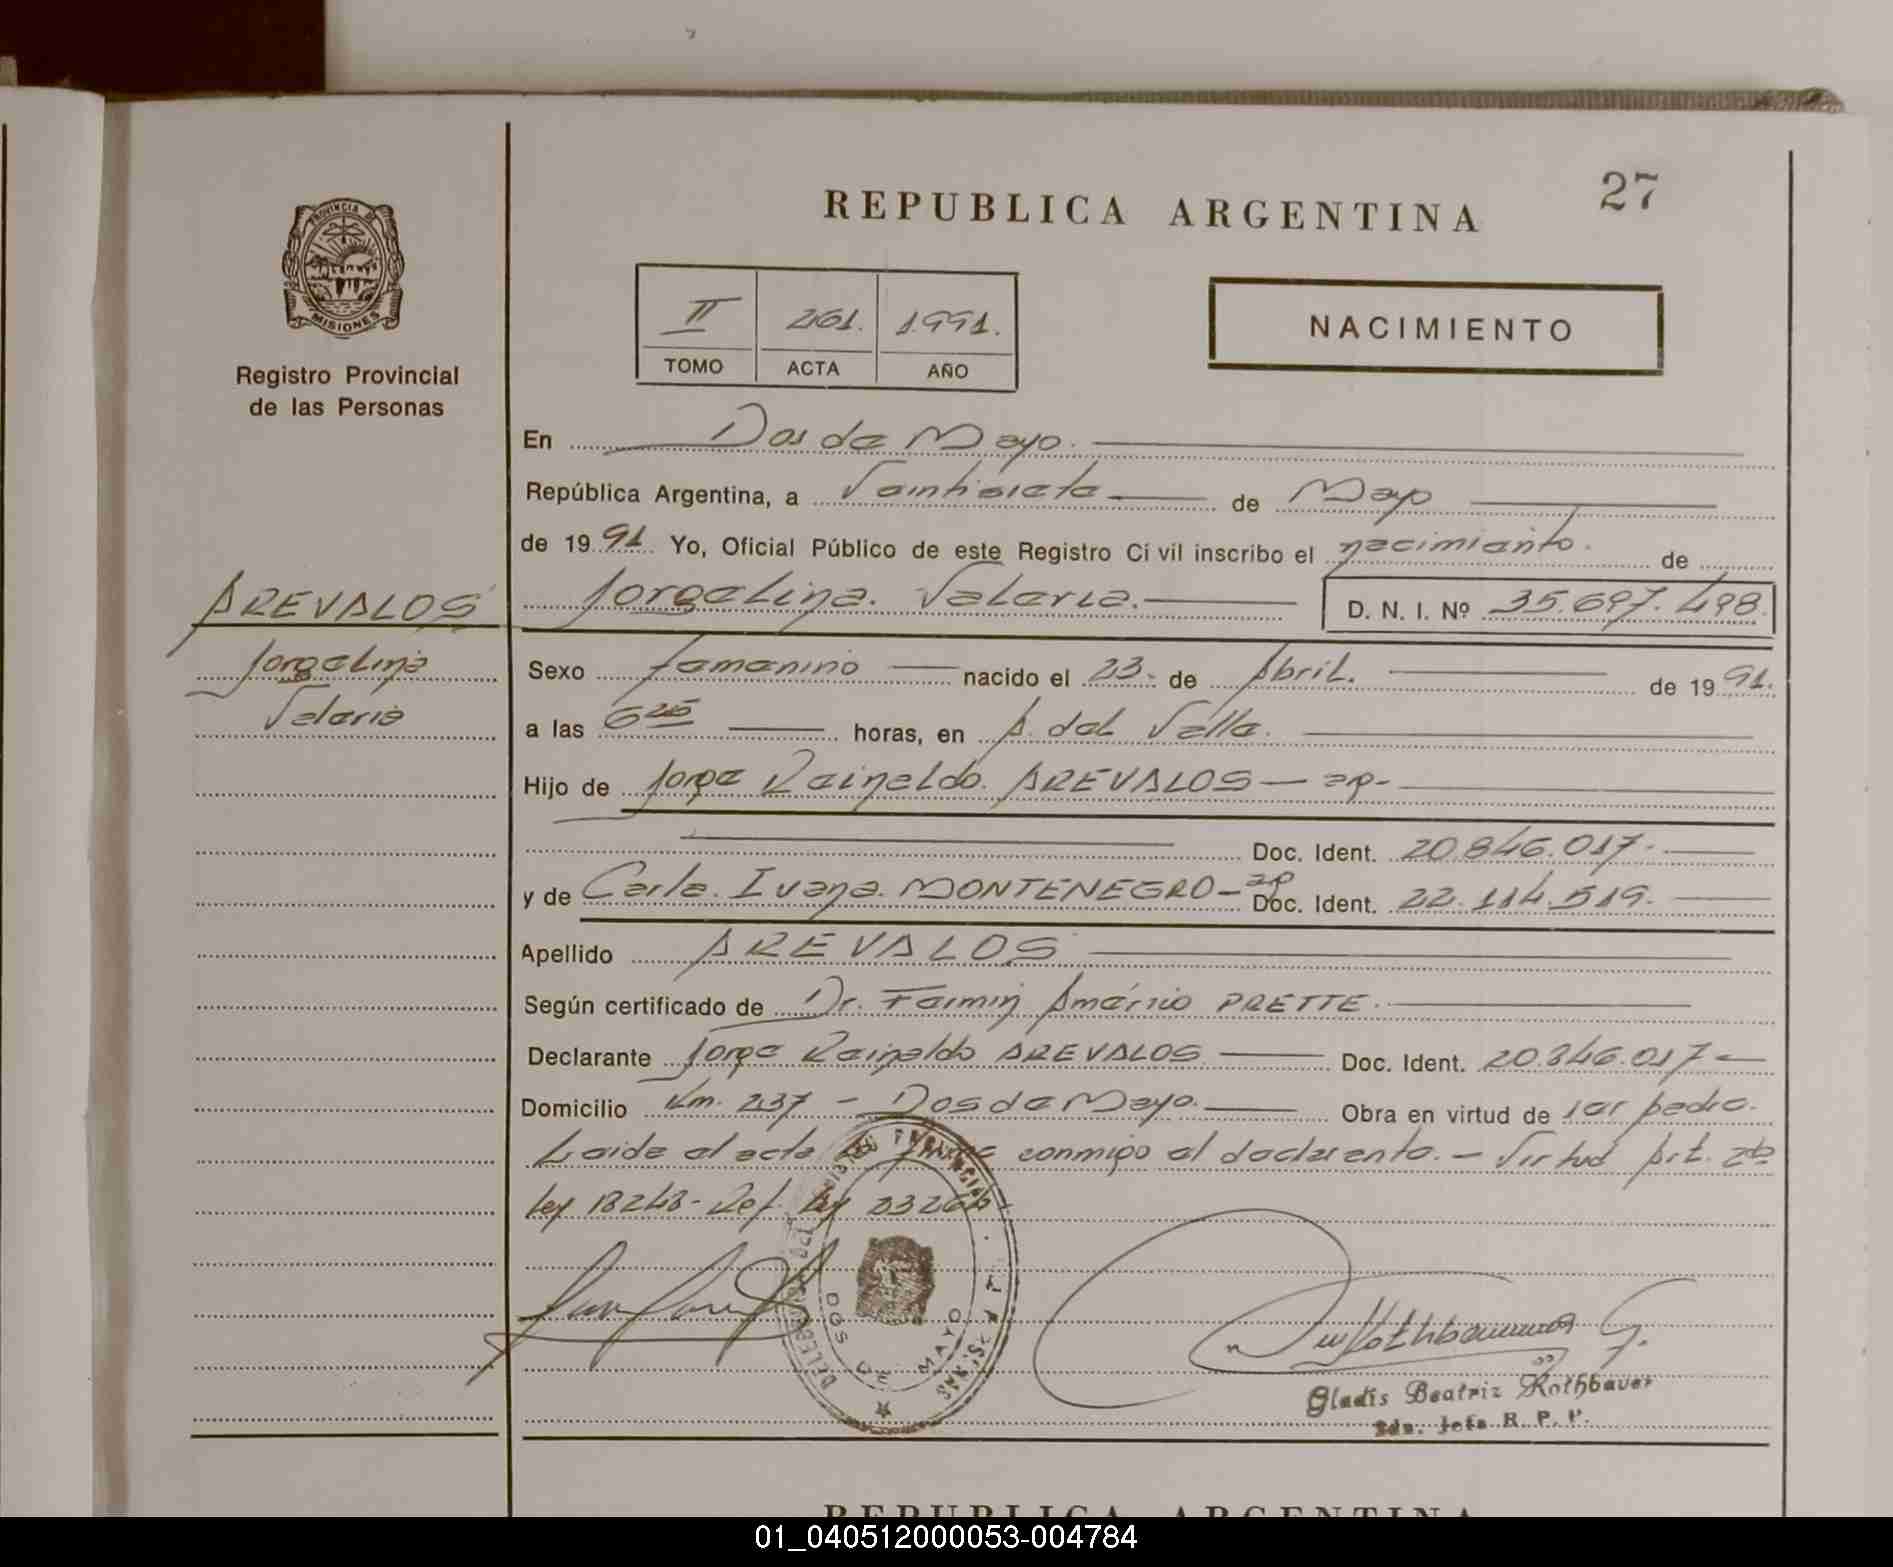 27
REPUBLICA ARGENTINA
PROVINCIA DE
MISIONES
Registro Provincial
de las Personas
II 261. 1.991.
TOMO ACTA AÑO
NACIMIENTO
En Dos de Mayo.
República Argentina, a Veintisiete de Mayo
de 19 91 Yo, Oficial Público de este Registro Civil inscribo el nacimiento. de
AREVALOS
Jorgelina
Valeria
Jorgelina. Valeria. D. N. I. Nº 35.697.498.
Sexo femenino nacido el 23. de Abril. de 19 91.
a las 6 25 horas, en A. del Valle.
Hijo de Jorge Reinaldo. AREVALOS - ap-
Doc. Ident. 20.846.017.-
y de Carla. Ivana. MONTENEGRO - ap Doc. Ident. 22.114.519.
Apellido AREVALOS
Según certificado de Dr. Fermin Américo PRETTE.
Declarante Jorge Reinaldo AREVALOS Doc. Ident. 20.846.017-
Domicilio Km. 237 - Dos de Mayo. Obra en virtud de ser padre.
Leida el acta conmigo el declarante. - Virtud Art. 2do
Ley 18248 - Ref. Ley 23264
DOS DE MAYO
Gladis Beatriz Rothbauer
Jefa R. P. P.
REPUBLICA ARGENTINA
01_040512000053-004784